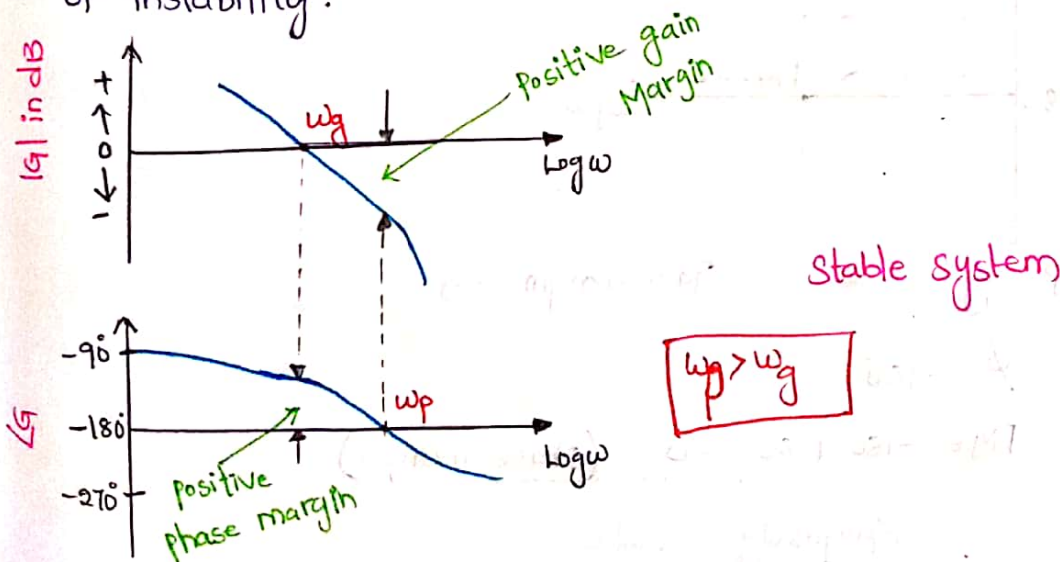 of instability.
|G| in dB
+
0
-
ωg
Positive gain
Margin
Log ω
Stable system
ωp > ωg
∠G
-90°
-180°
-270°
ωp
Log ω
positive
phase margin